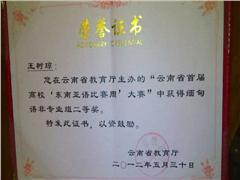 荣誉证书
王树琼：
您在云南省教育厅主办的“云南省首届
高校‘东南亚语比赛周’大赛”中获得缅甸
语非专业组二等奖。
特发此证书，以资鼓励。
云南省教育厅
二〇一二年五月三十日